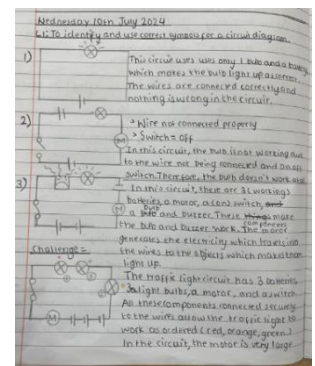 Wednesday 10th July 2024
LI: To identify and use correct symbols for a circuit diagram
1)
This circuit uses uses only 1 bulb and a battery
which makes the bulb light up
The wires are connected correctly and
nothing is wrong in the circuit.
2)
* Wire not connected properly
* Switch = off
M
In this circuit, the bulb is not working due
to the wire not being connected and an off
switch. Therefore, the bulb doesn't work
3)
In this circuit, there are 3 working
batteries, a motor, a (on) switch,
M
a bulb and buzzer. These components make
the bulb and buzzer work. The motor
generates the electricity which travels into
the wires to the objects which make them
light up.
Challenge =
The traffic light circuit has 3 batteries
3 light bulbs, a motor, and a switch
All these components connected securely
to the wires allow the traffic light to
work as ordered (red, orange, green)
M
In the circuit, the motor is very large